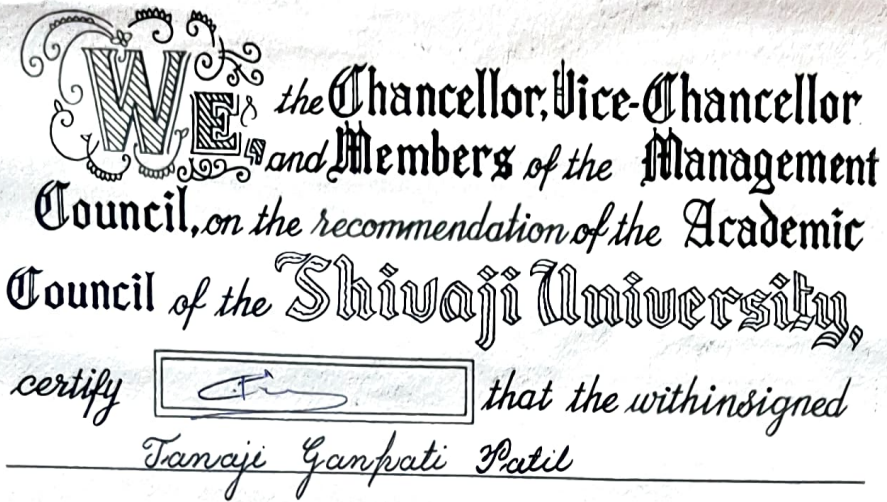 WE, the Chancellor, Vice-Chancellor
and Members of the Management
Council, on the recommendation of the Academic
Council of the Shivaji University,
certify that the withinsigned
Tanaji Ganpati Patil